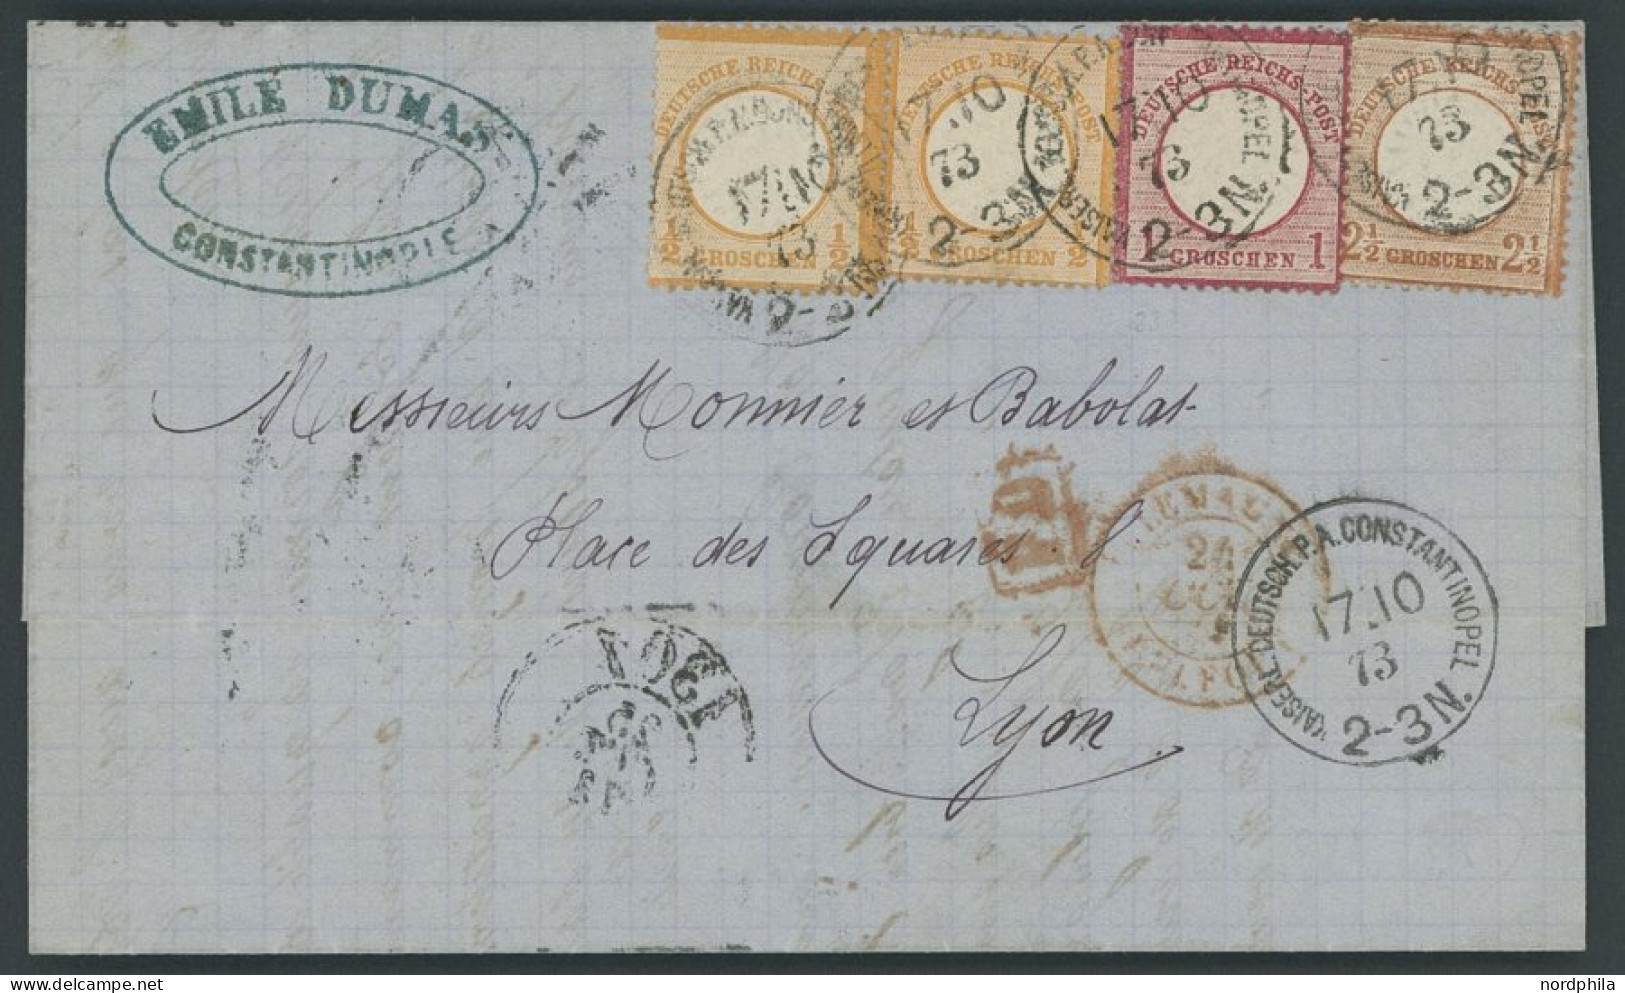 EMILE DUMAS
CONSTANTINOPLE
DEUTSCHE REICHS-POST
½ GROSCHEN ½
17.10
73
2-3N
DEUTSCHE REICHS-POST
½ GROSCHEN ½
17.10
73
2-3N
DEUTSCHE REICHS-POST
1 GROSCHEN 1
17.10
73
2-3N.
DEUTSCHE REICHS-POST
2½ GROSCHEN 2½
17.10
73
2-3N.
Messieurs Monnier et Babolat
Place des Squares. 8.
Lyon
KAISERL. DEUTSCH. P. A. CONSTANTINOPEL
17.10
73
2-3N.
nordphila